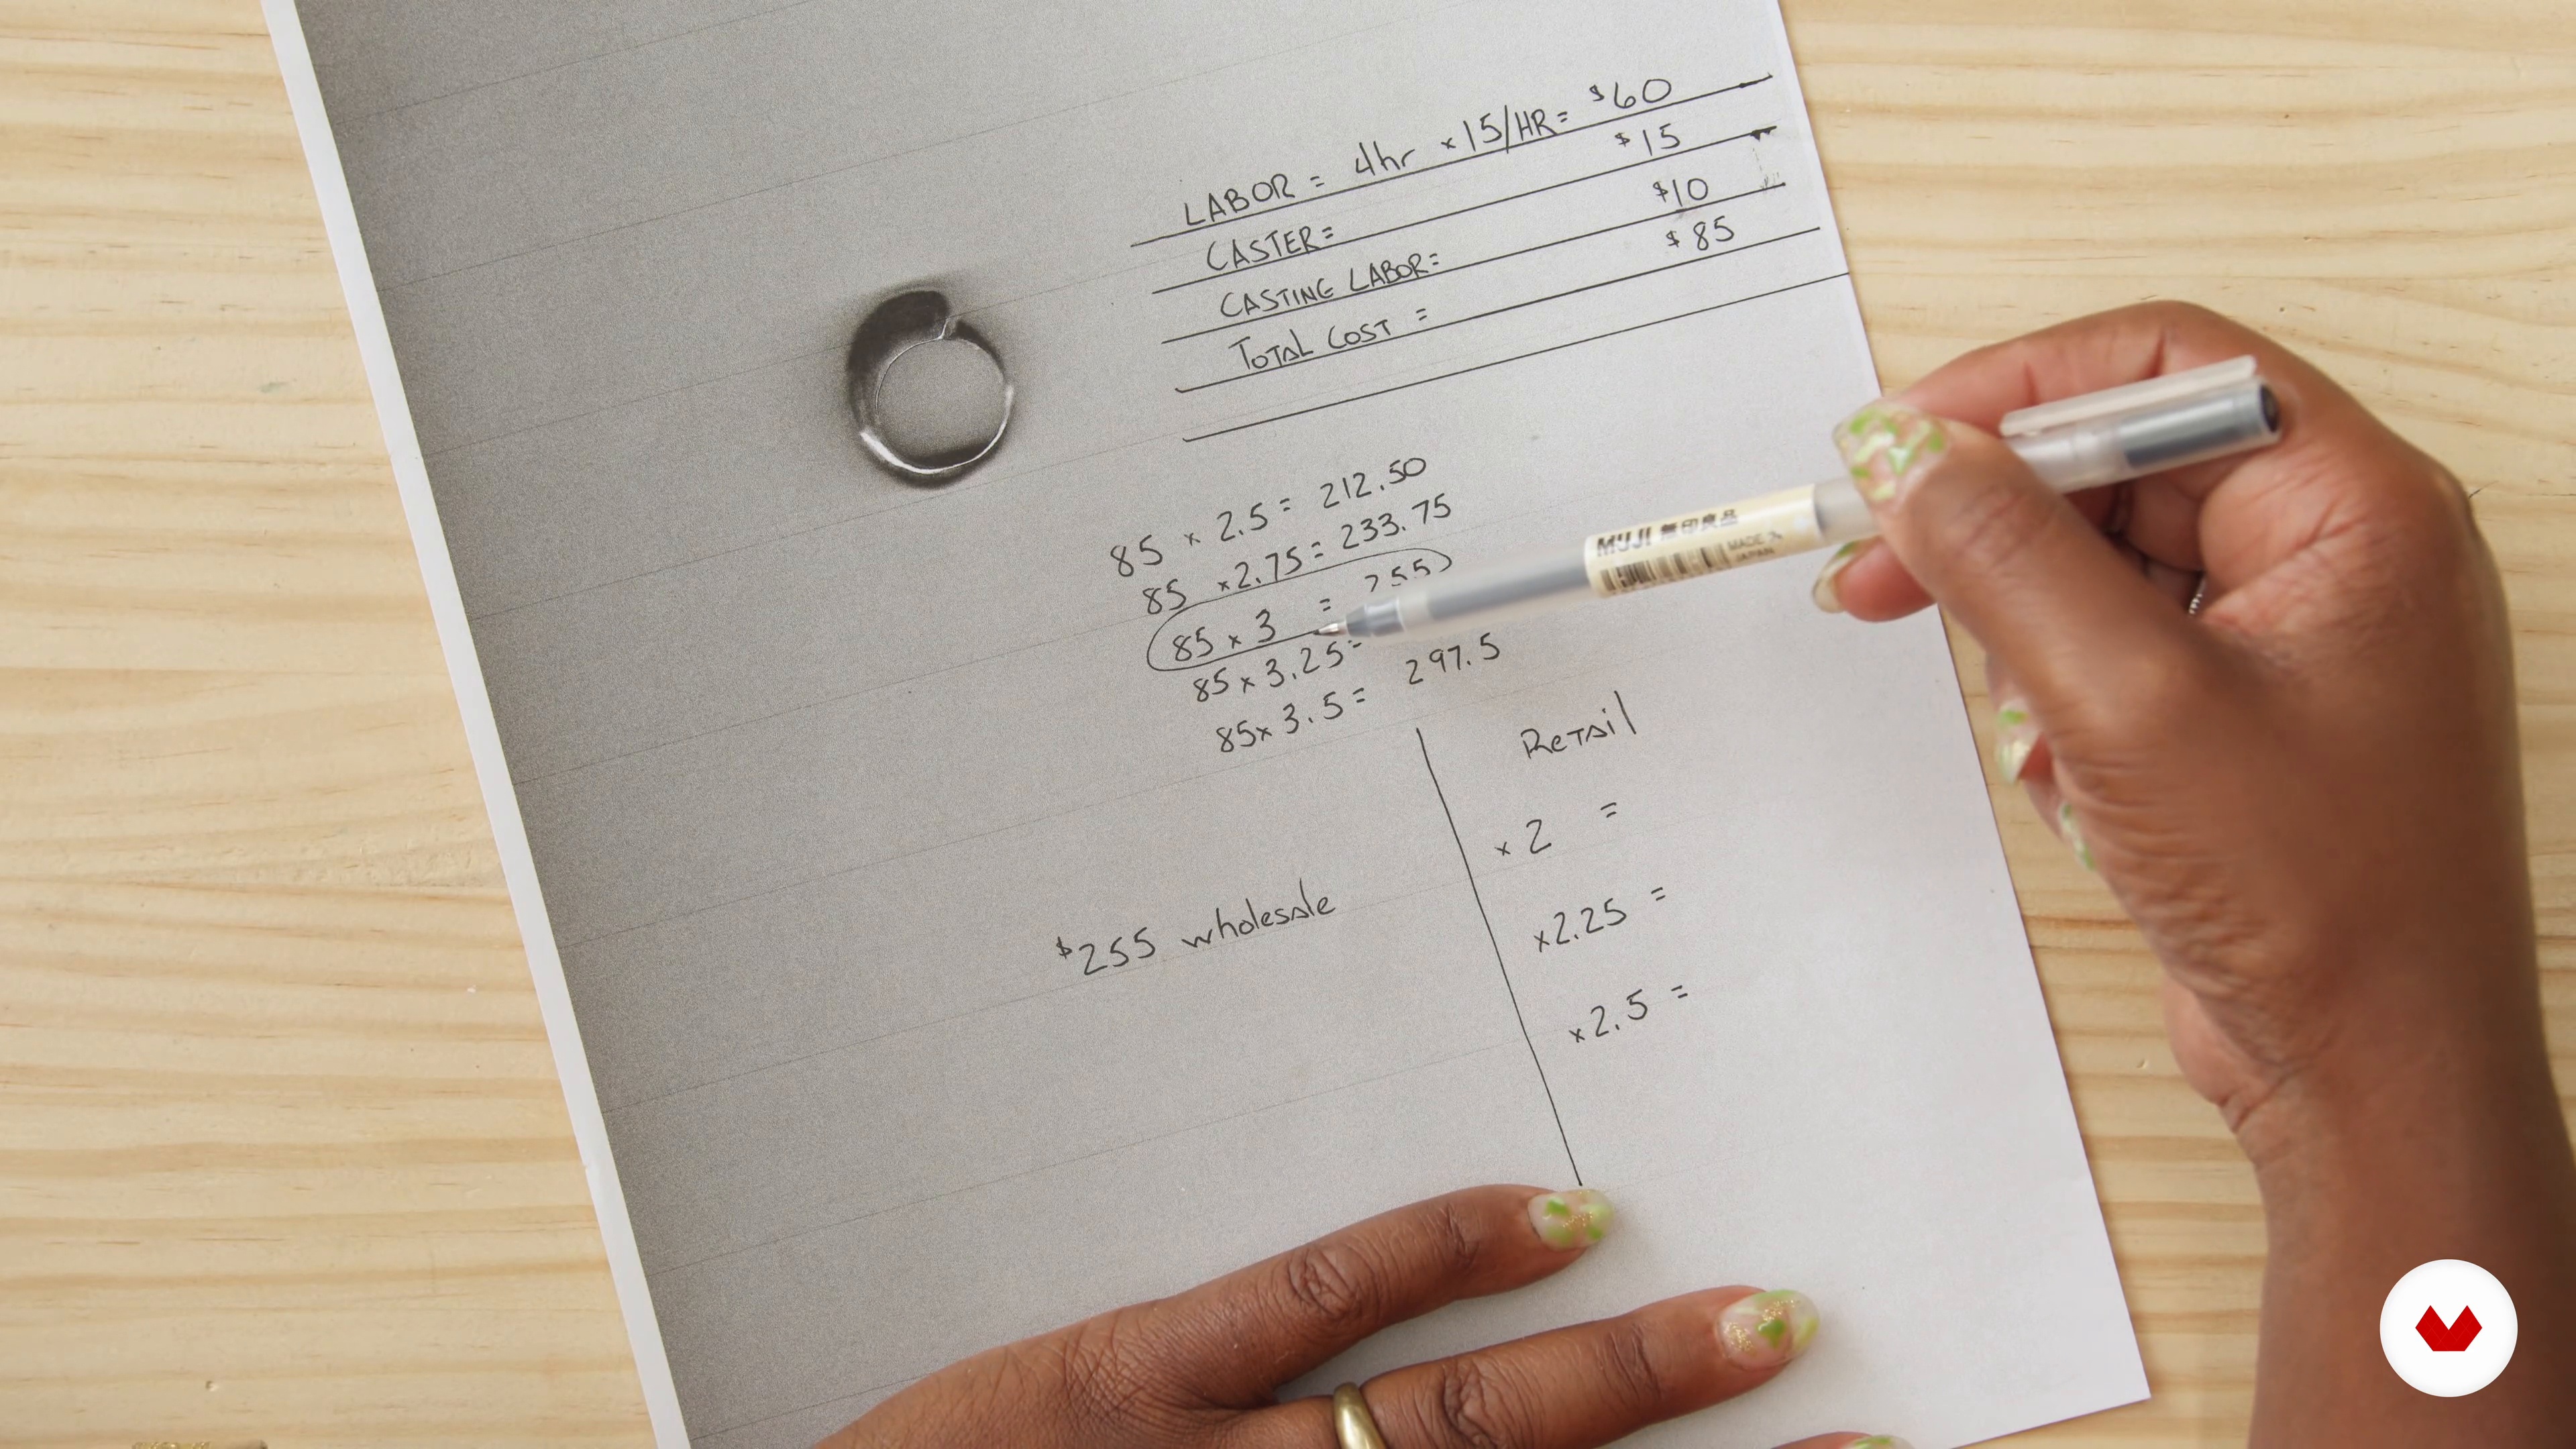 LABOR = 4hr x 15/HR = $60
CASTER = $15
CASTING LABOR = $10
TOTAL COST = $85
85 x 2.5 = 212.50
85 x 2.75 = 233.75
85 x 3 = 255
85 x 3.25 =
85 x 3.5 = 297.5
Retail
x 2 =
$255 wholesale
x 2.25 =
x 2.5 =
MUJI 無印良品
MADE IN
JAPAN